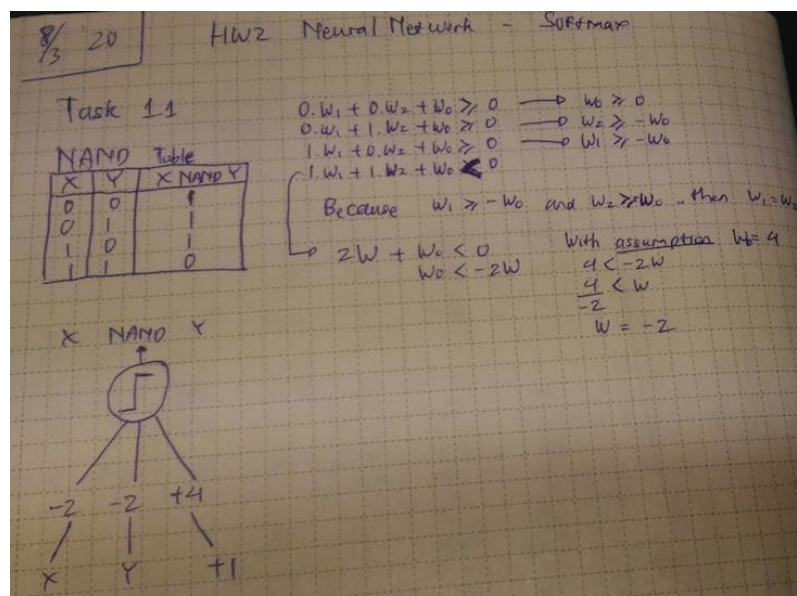 8/3 20
HW2 Neural Network - Softmax
Task 1.1
NAND Table
X Y X NAND Y
0 0 1
0 1 1
1 0 1
1 1 0
0.W₁ + 0.W₂ + W₀ ⩾ 0 → W₀ ⩾ 0
0.W₁ + 1.W₂ + W₀ ⩾ 0 → W₂ ⩾ -W₀
1.W₁ + 0.W₂ + W₀ ⩾ 0 → W₁ ⩾ -W₀
1.W₁ + 1.W₂ + W₀ < 0
Because W₁ ⩾ -W₀ and W₂ ⩾ -W₀, then W₁ = W₂
2W + W₀ < 0
W₀ < -2W
With assumption W₀ = 4
4 < -2W
4/-2 < W
W = -2
X NAND Y
-2 -2 +4
X Y +1